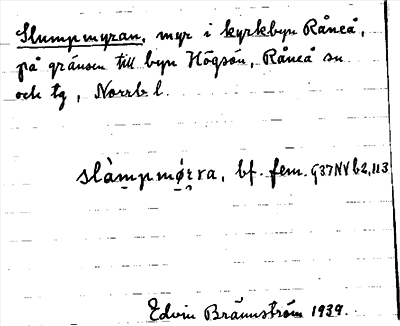 Slumpmyran, myr i kyrkbyn Råneå,
på gränsen till byn Högsön, Råneå sn
och tg, Norrb. l.
slàmpmø̣rra, bf. fem. G37NVb2,113
Edvin Brännström 1939.